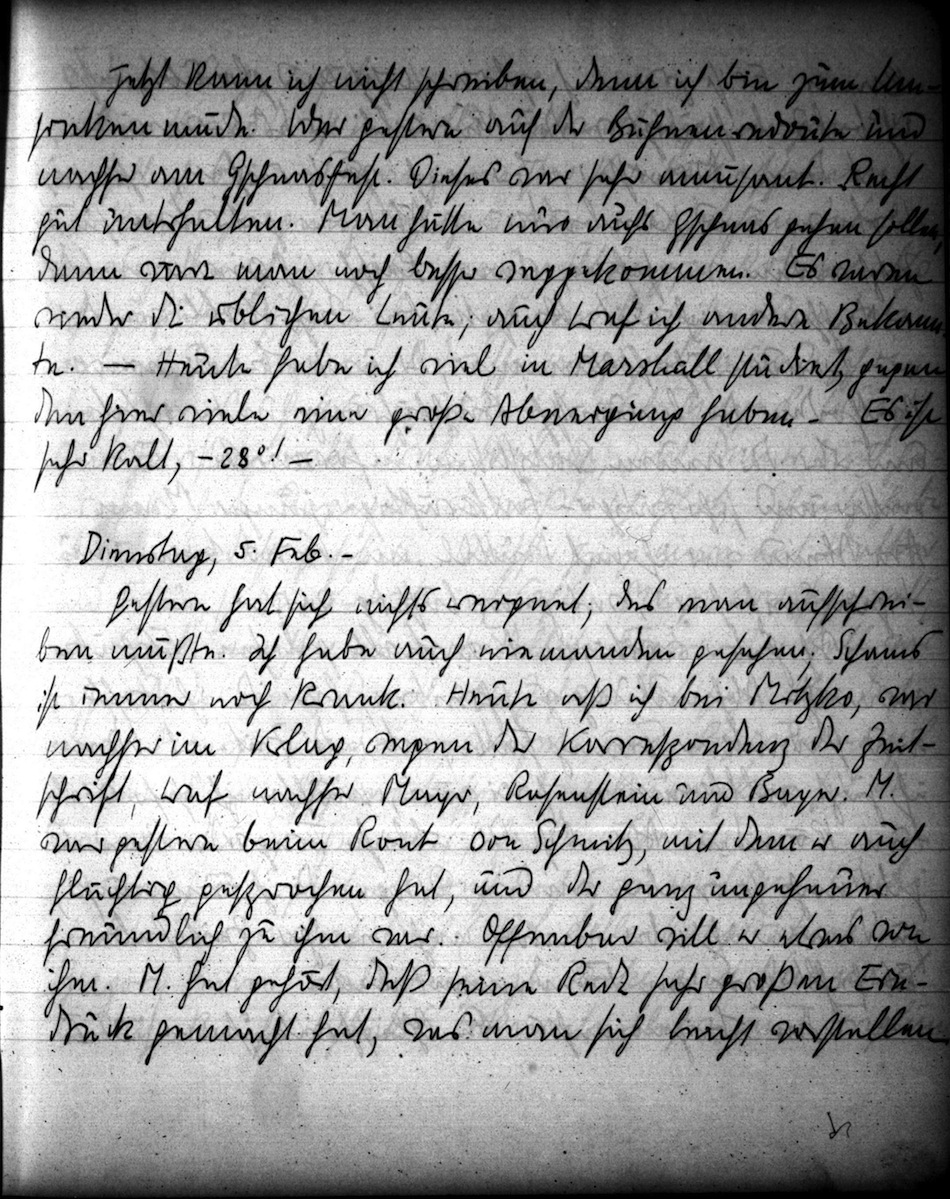 Jetzt kann ich nicht schreiben, denn ich bin zum Um-
sinken müde. War gestern auf der Bühnenredoute und
nachher am Gschnasfest. Dieses war sehr amüsant. Recht
gut unterhalten. Man hätte nur aufs Gschnas gehen sollen,
dann wäre man noch besser weggekommen. Es waren
wieder die üblichen Leute, auch traf ich andere Bekann
te. — Heute habe ich viel in Marshall studiert, gegen
den hier viele eine große Abneigung haben. – Es ist
sehr kalt, – 28°! –
Dienstag, 5. Feb. –
Gestern hat sich nichts ereignet, das man aufschrei-
ben müßte. Ich habe auch niemanden gesehen, Schams
ist immer noch krank. Heute aß ich bei Mötzko, war
nachher im Verlag, wegen der Korrespondenz der Zeit-
schrift, traf nachher Mayer, Rosenstein und Bayer. M.
war gestern beim Rout von Schmitz, mit dem er auch
flüchtig gesprochen hat, und der ganz ungeheuer
freundlich zu ihm war. Offenbar will er etwas von
ihm. M. hat gehört, daß seine Rede sehr großen Ein-
druck gemacht hat, was man sich leicht vorstellen